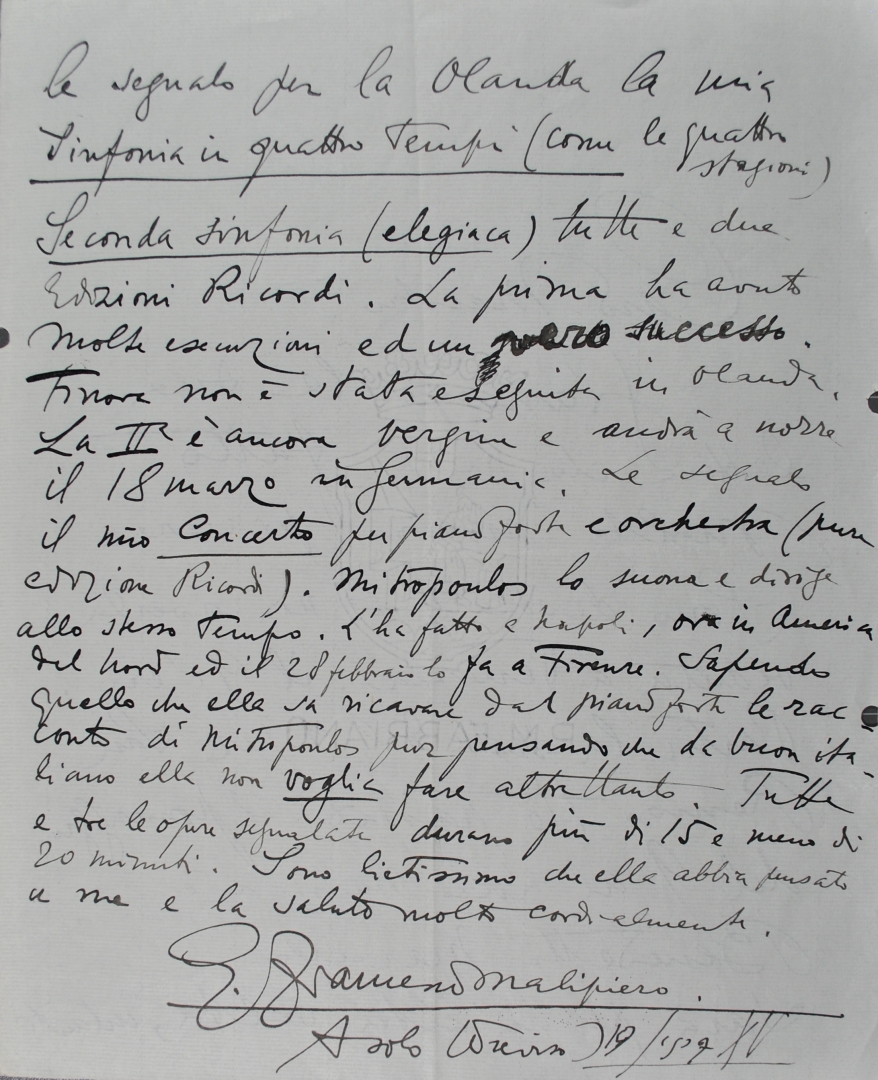 le segnalo per la Olanda la mia
Sinfonia in quattro tempi (come le quattro
stagioni)
Seconda sinfonia (elegiaca) tutte e due
Edizioni Ricordi. La prima ha avuto
molte esecuzioni ed un vero successo.
Finora non è stata eseguita in Olanda.
La IIa è ancora vergine e andrà a nozze
il 18 marzo in Germania. Le segnalo
il mio Concerto per pianoforte e orchestra (pure
edizione Ricordi). Mitropoulos lo suona e dirige
allo stesso tempo. L'ha fatto a Napoli, ora in America
del Nord ed il 28 febbraio lo fa a Firenze. Sapendo
quello che ella sa ricavare dal pianoforte le rac
conto di Mitropoulos pur pensando che da buon ita-
liano ella non voglia fare altrettanto. Tutte
e tre le opere segnalate durano più di 15 e meno di
20 minuti. Sono lietissimo che ella abbia pensato
a me e la saluto molto cordialmente.
G. Francesco Malipiero.
Asolo (Treviso) 19/1937 XV